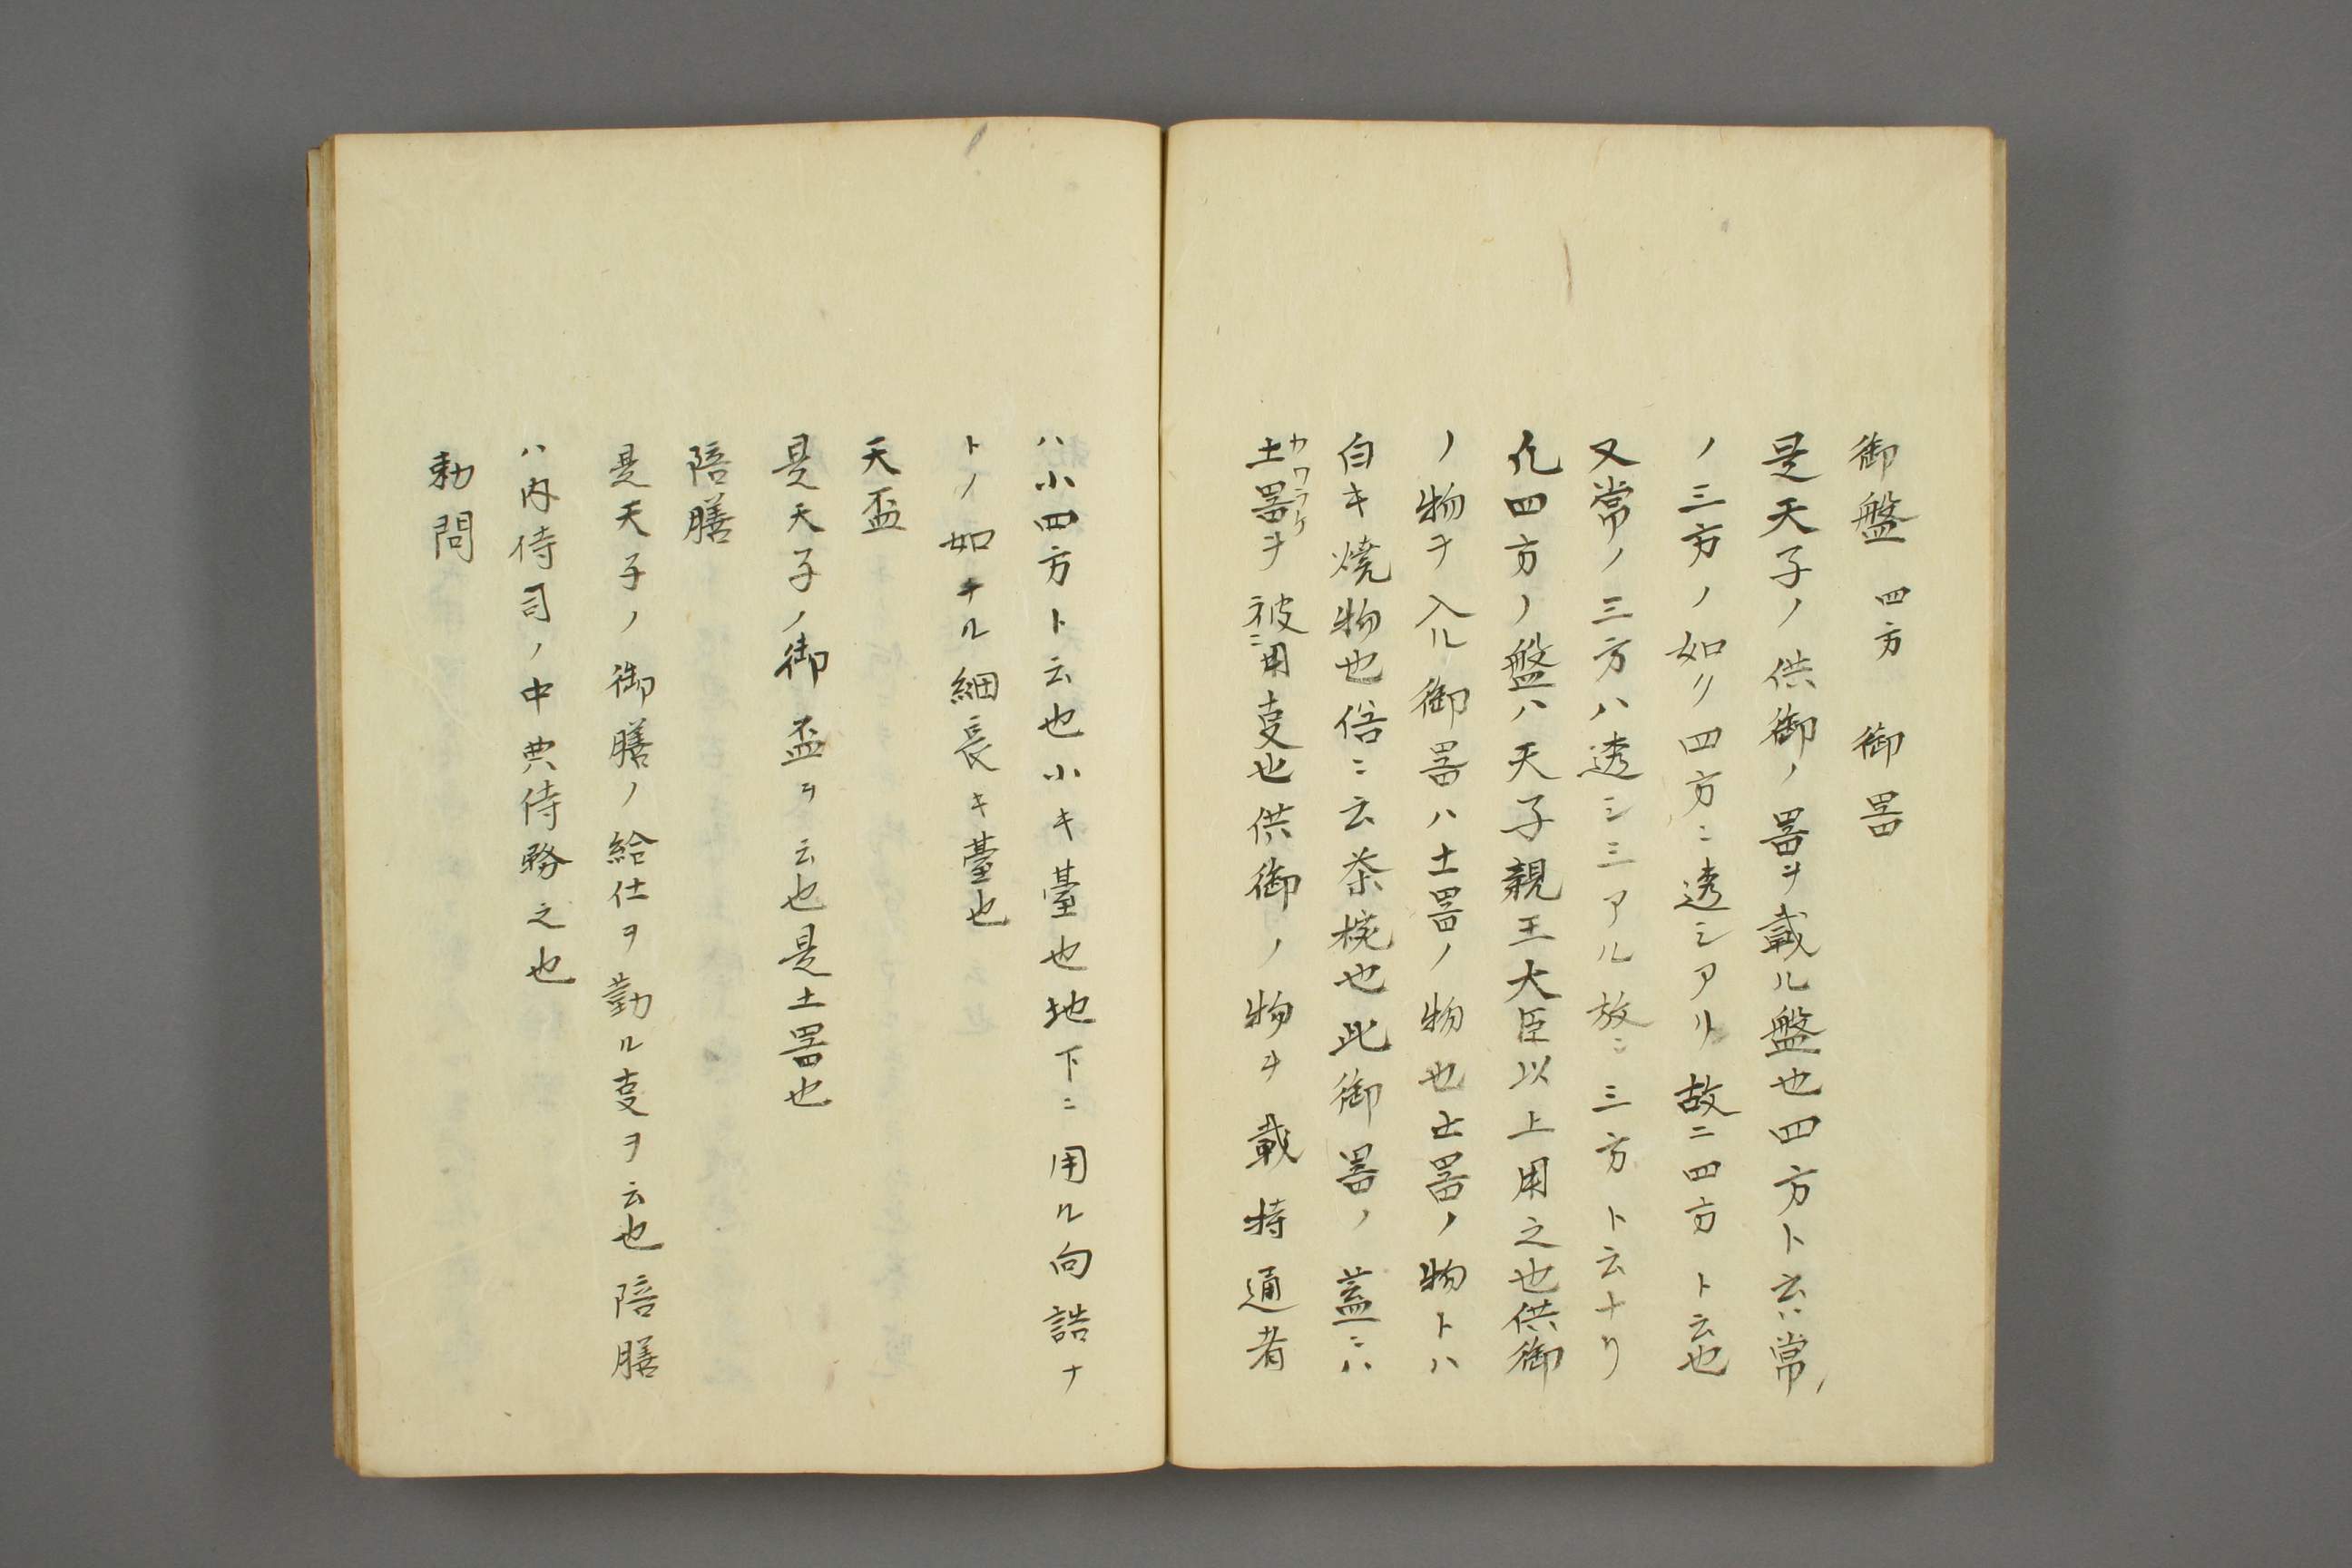 御盤　四方　御噐
是天子ノ供御ノ噐ヲ載ル盤也四方ト云ハ常ノ
ノ三方ノ如リ四方ニ透シアリ故ニ四方ト云也
又常ノ三方ハ透シ三アル故ニ三方ト云ナリ
凡四方ノ盤ハ天子親王大臣以上用之也供御
ノ物ヲ入ル御噐ハ土噐ノ物也土噐ノ物トハ
白キ焼物也俗ニ云茶椀也此御噐ノ蓋ニハ
土噐ヲ被用叓也供御ノ物ヲ載持通者
カワラケ
ハ小四方ト云也小キ臺也地下ニ用ル向詰ナ
トノ如ナル細長キ臺也
天盃
是天子ノ御盃ヲ云也是土噐也
陪膳
是天子ノ御膳ノ給仕ヲ勤ル叓ヲ云也陪膳
ハ内侍司ノ中典侍務之也
勅問